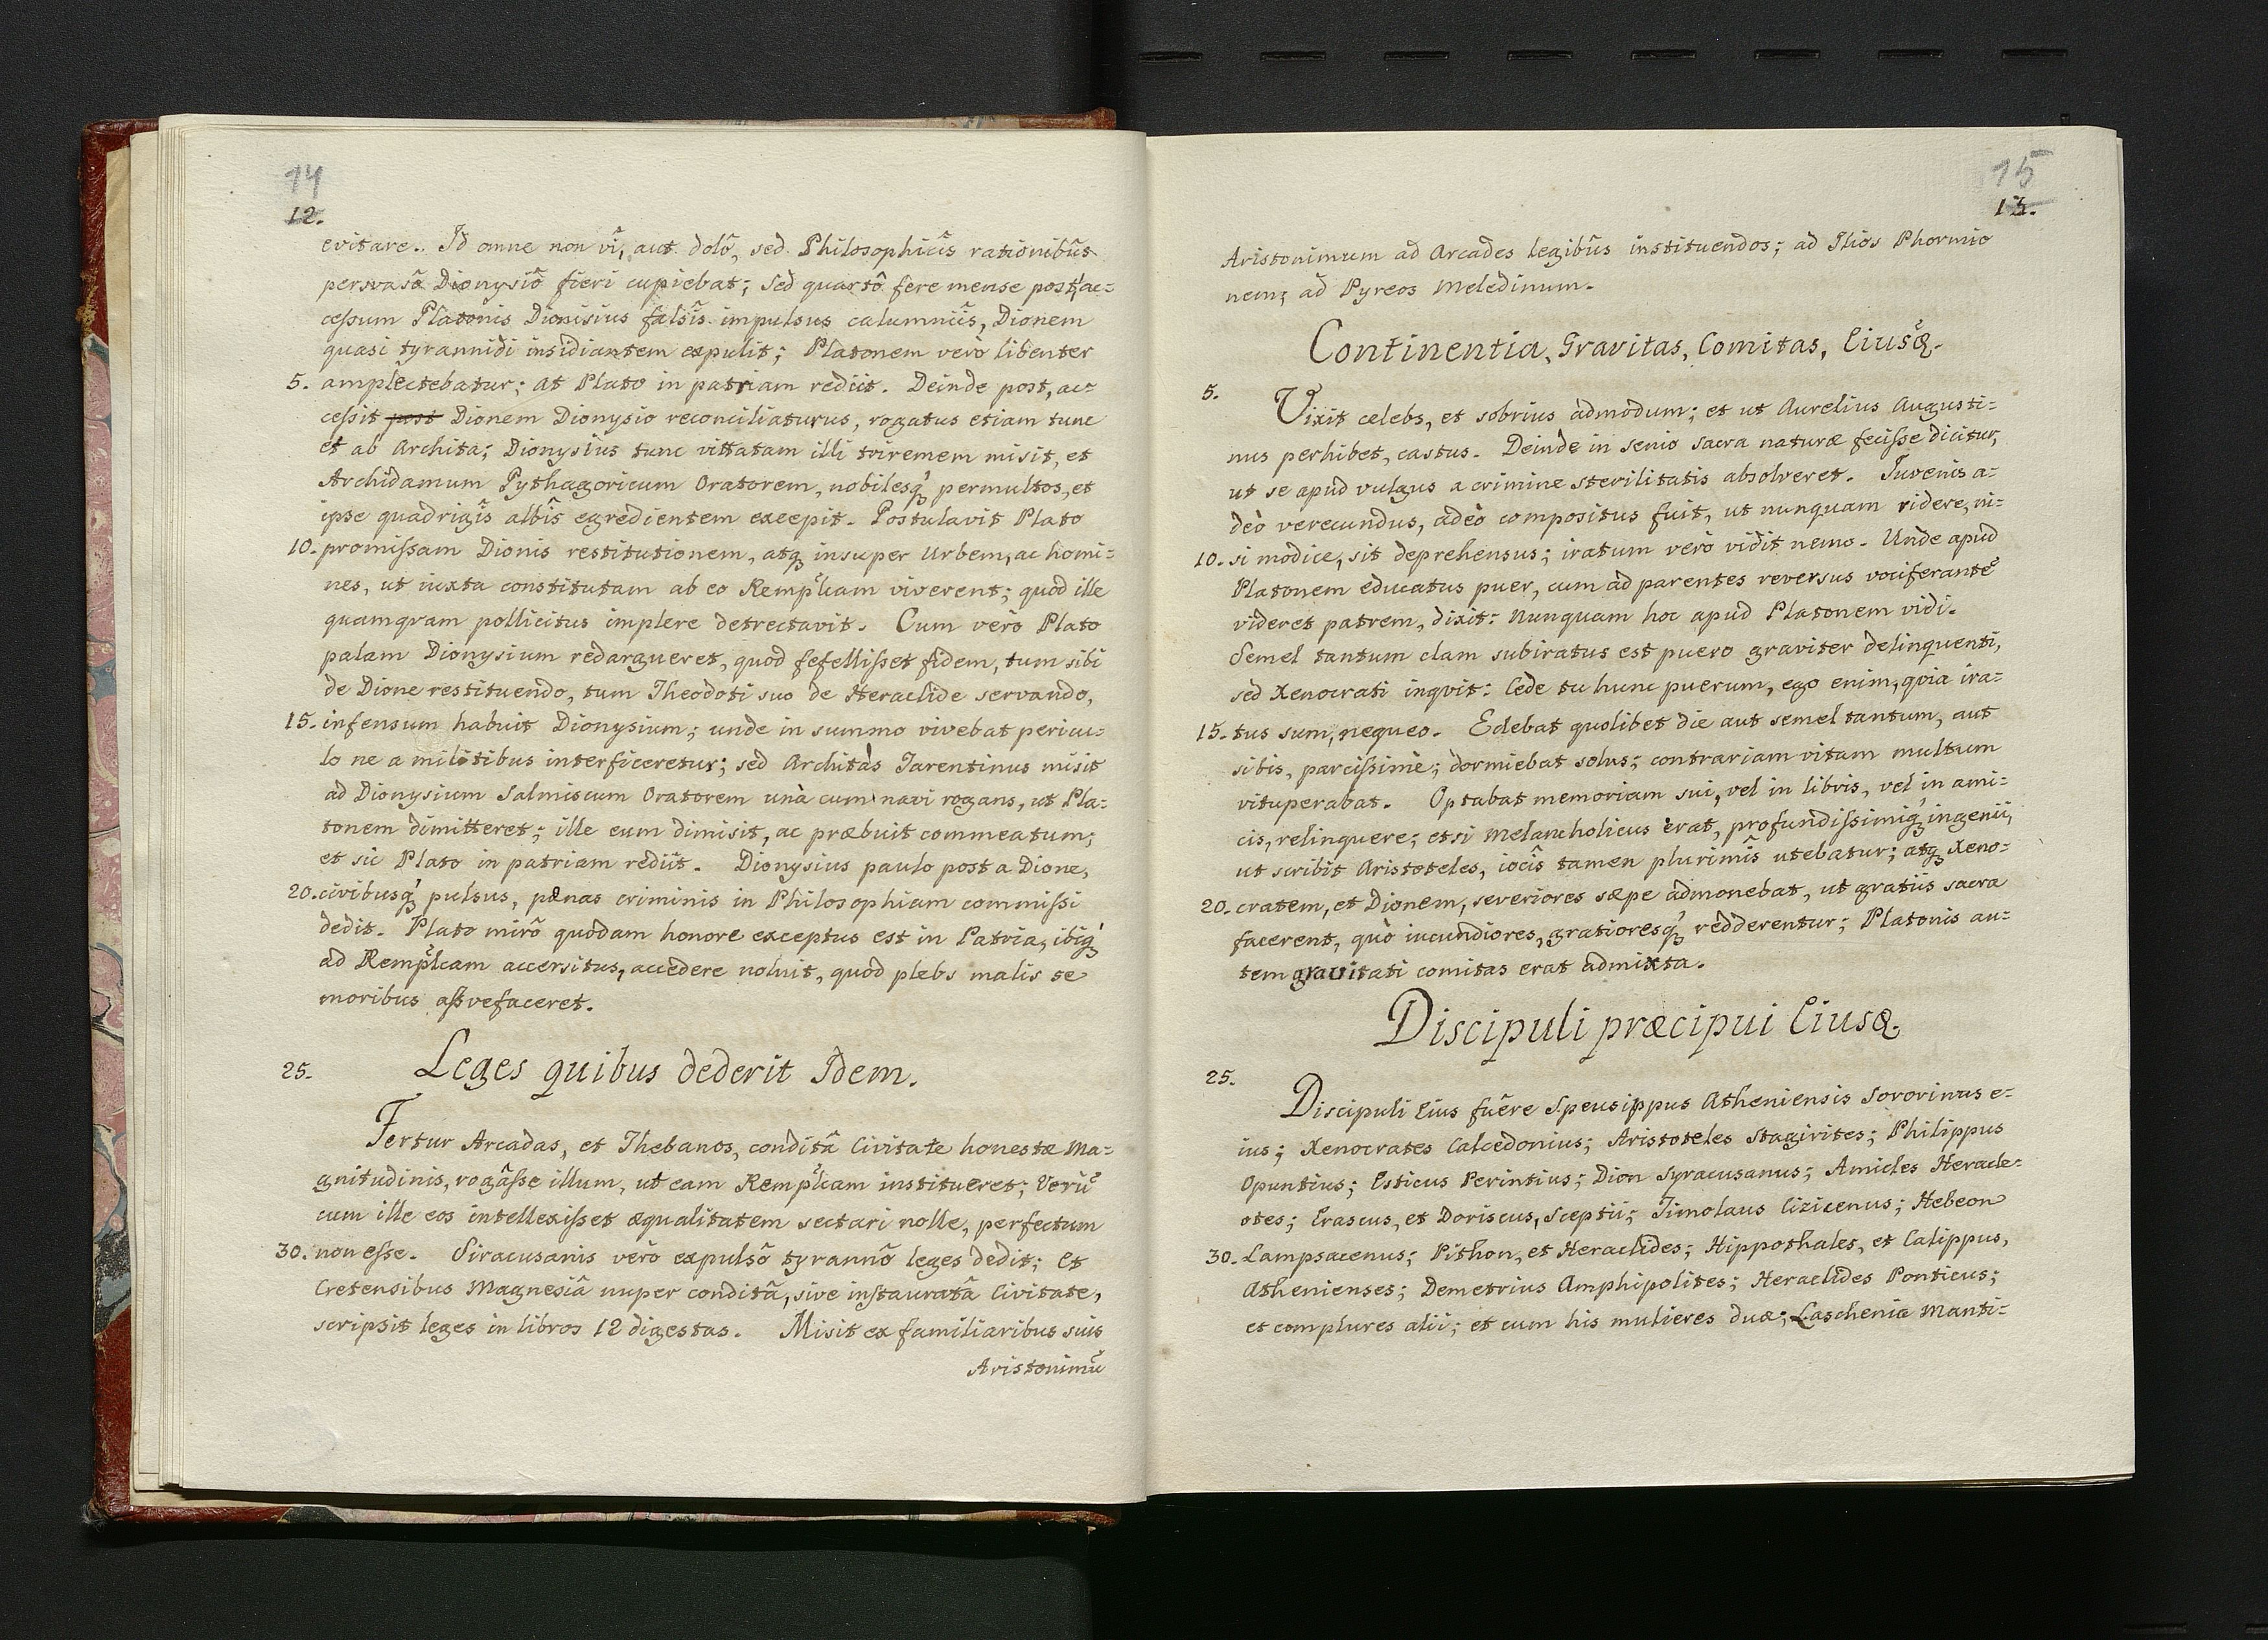 14
12.
evitare. Id omne non vî, aut dolô, sed Philosophicîs rationibûs
persvasô Dionysiô fieri cupiebat; sed quartô fere mense post, ac=
cessum Platonis Dionisius falsîs impulsus calumniîs, Dionem
quasi tyrannidi insidiantem expulit; Platonem verò libenter
5. amplectebatur; at Plato in patriam rediit. Deinde post, ac=
cessit post Dionem Dionysio reconciliaturus, rogatus etiam tunc
et ab Archita; Dionysius tunc vittatam illi triremem misit, et
Archidamum Pythagoricum Oratorem, nobilesq́ꝫ permultos, et
ipse quadrigîs albîs egredientem excepit. Postulavit Plato
10. promissam Dionis restitutionem, atqꝫ insuper Urbem, ac homi=
nes, ut iuxta constitutam ab eo Rempl̃cam viverent; quod ille
quamqram pollicitus implere detrectavit. Cum verò Plato
palam Dionysium redargueret, quod fefellisset fidem, tum sibi
de Dione restituendo, tum Theodoti suo de Heraclide servando,
15. infensum habuit Dionysium; unde in summo vivebat pericu=
lo ne a militibus interficeretur; sed Architàs Tarentinus misit
ad Dionysium Salmiscum Oratorem unà cum navi rogans, ut Pla=
tonem dimitteret; ille eum dimisit, ac præbuit commeatum;
et sic Plato in patriam rediit. Dionysius paulo post a Dione,
20. civibusq́ꝫ pulsus, pænas criminis in Philosophiam commissi
dedit. Plato mirô quodam honore exceptus est in Patria, ibiq́ꝫ
ad Rempl̃cam accersitus, accedere noluit, quod plebs malis se
moribus assvefaceret.
25. Leges quibus dederit Idem.
Fertur Arcadas, et Thebanos, conditâ Civitate honestæ Ma=
gnitudinis, rogâsse illum, ut eam Rempl̃cam institueret; Verũ
cum ille eos intellexisset æqualitatem sectari nolle, perfectum
30. non esse. Siracusanis verò expulsô tyrannô leges dedit; Et
Cretensibus Magnesiâ nuper conditâ, sive instauratâ Civitate,
scripsit leges in libros 12 digestas. Misit ex familiaribus suis
Aristonimũ
15
13.
Aristonimum ad Arcades legibûs instituendos; ad Ilios Phormio
nem; ad Pyreos Meledinum.
Continentia, Gravitas, Comitas, Eiusq̃ꝫ.
5.
Vixit celebs, et sobrius admodum; et ut Aurelius Augusti=
nus perhibet, castus. Deinde in senio sacra naturæ fecisse dicitur,
ut se apud vulgus a crimine sterilitatis absolveret. Iuvenis a=
deò verecundus, adeò compositus fuit, ut nunquam ridere, ni=
10. si modice, sit deprehensus; iratum verò vidit nemo. Unde apud
Platonem educatus puer, cum ad parentes reversus vociferantẽ
videret patrem, dixit: Nunquam hoc apud Platonem vidi.
Semel tantum clam subiratus est puero graviter delinquenti,
sed Xenocrati inqvit: Cede tu hunc puerum, ego enim, qvia ira=
15. tus sum, nequeo. Edebat quolibet die aut semel tantum, aut
sibis, parcissimè; dormiebat solus; contrariam vitam multum
vituperabat. Optabat memoriam sui, vel in libris, vel in ami=
cis, relinquere; etsi Melancholicus erat, profundissimiq́ꝫ ingenii,
ut scribit Aristoteles, iocîs tamen plurimîs utebatur; atqꝫ Xeno=
20. cratem, et Dionem, severiores sæpe admonebat, ut gratiîs sacra
facerent, quò iucundiores, gratioresq́ꝫ redderentur; Platonis au=
tem gravitati comitas erat admixta.
Discipuli præcipui Eiusqꝫ.
25.
Discipuli Eius fuêre Speusippus Atheniensis Sororinus e=
ius; Xenocrates Calcedonius; Aristoteles Stagirites; Philippus
Opuntius; Esticus Perintius; Dion Syracusanus; Amicles Heracle=
otes; Erascus, et Doriscus, Sceptii; Timolaus Cizicenus; Hebeon
30. Lampsacenus; Pithon, et Heraclides; Hippothales, et Calippus,
Athenienses; Demetrius Amphipolites; Heraclides Ponticus;
et complures alii; et cum his mulieres duæ; Laschenia Manti=